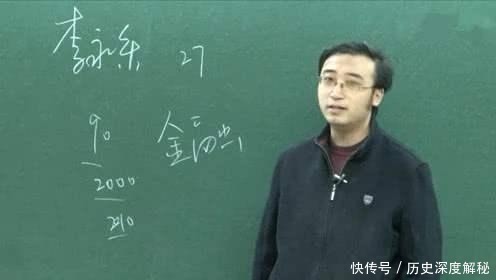 李永乐 27
90
2000
210
快传号 / 历史深度解秘